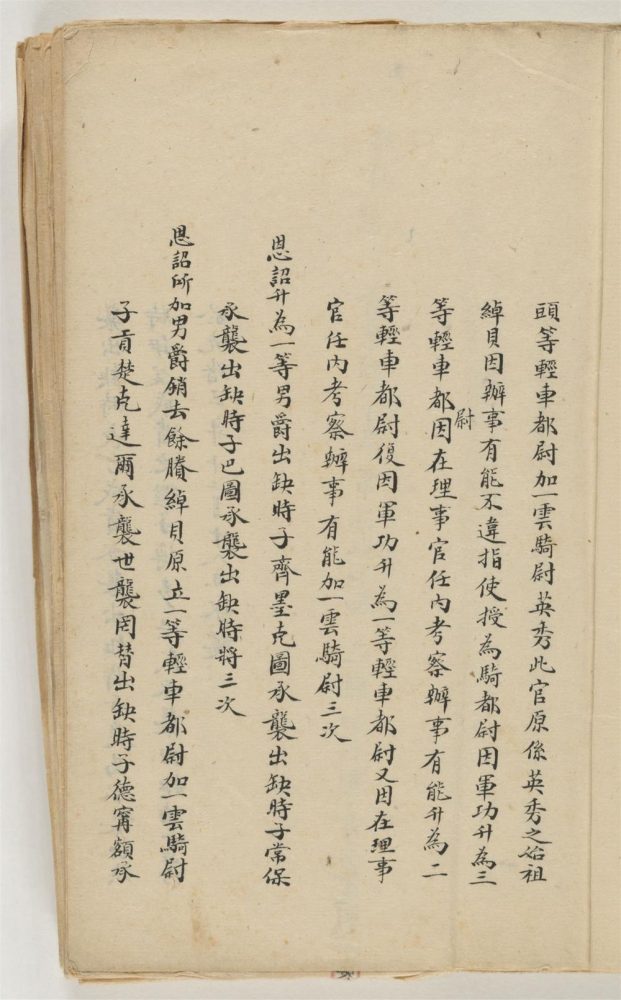 頭等輕車都尉加一雲騎尉英秀此官原係英秀之始祖
綽貝因辦事有能不違指使授為騎都尉因軍功升為三
等輕車都尉因在理事官任內考察辦事有能升為二
等輕車都尉復因軍功升為一等輕車都尉又因在理事
官任內考察辦事有能加一雲騎尉三次
恩詔升為一等男爵出缺時子齊墨克圖承襲出缺時子常保
承襲出缺時子巴圖承襲出缺時將三次
恩詔所加男爵銷去餘賸綽貝原立一等輕車都尉加一雲騎尉
子貢楚克達爾承襲世襲罔替出缺時子德甯額承